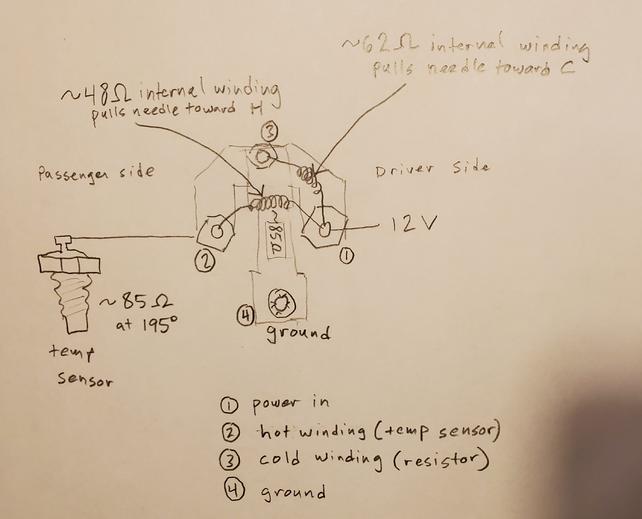 ~62Ω internal winding
pulls needle toward C
~48Ω internal winding
pulls needle toward H
③
Passenger side
Driver side
12V
~85Ω
②
①
~85Ω
at 195°
④
ground
temp
sensor
① power in
② hot winding (temp sensor)
③ cold winding (resistor)
④ ground